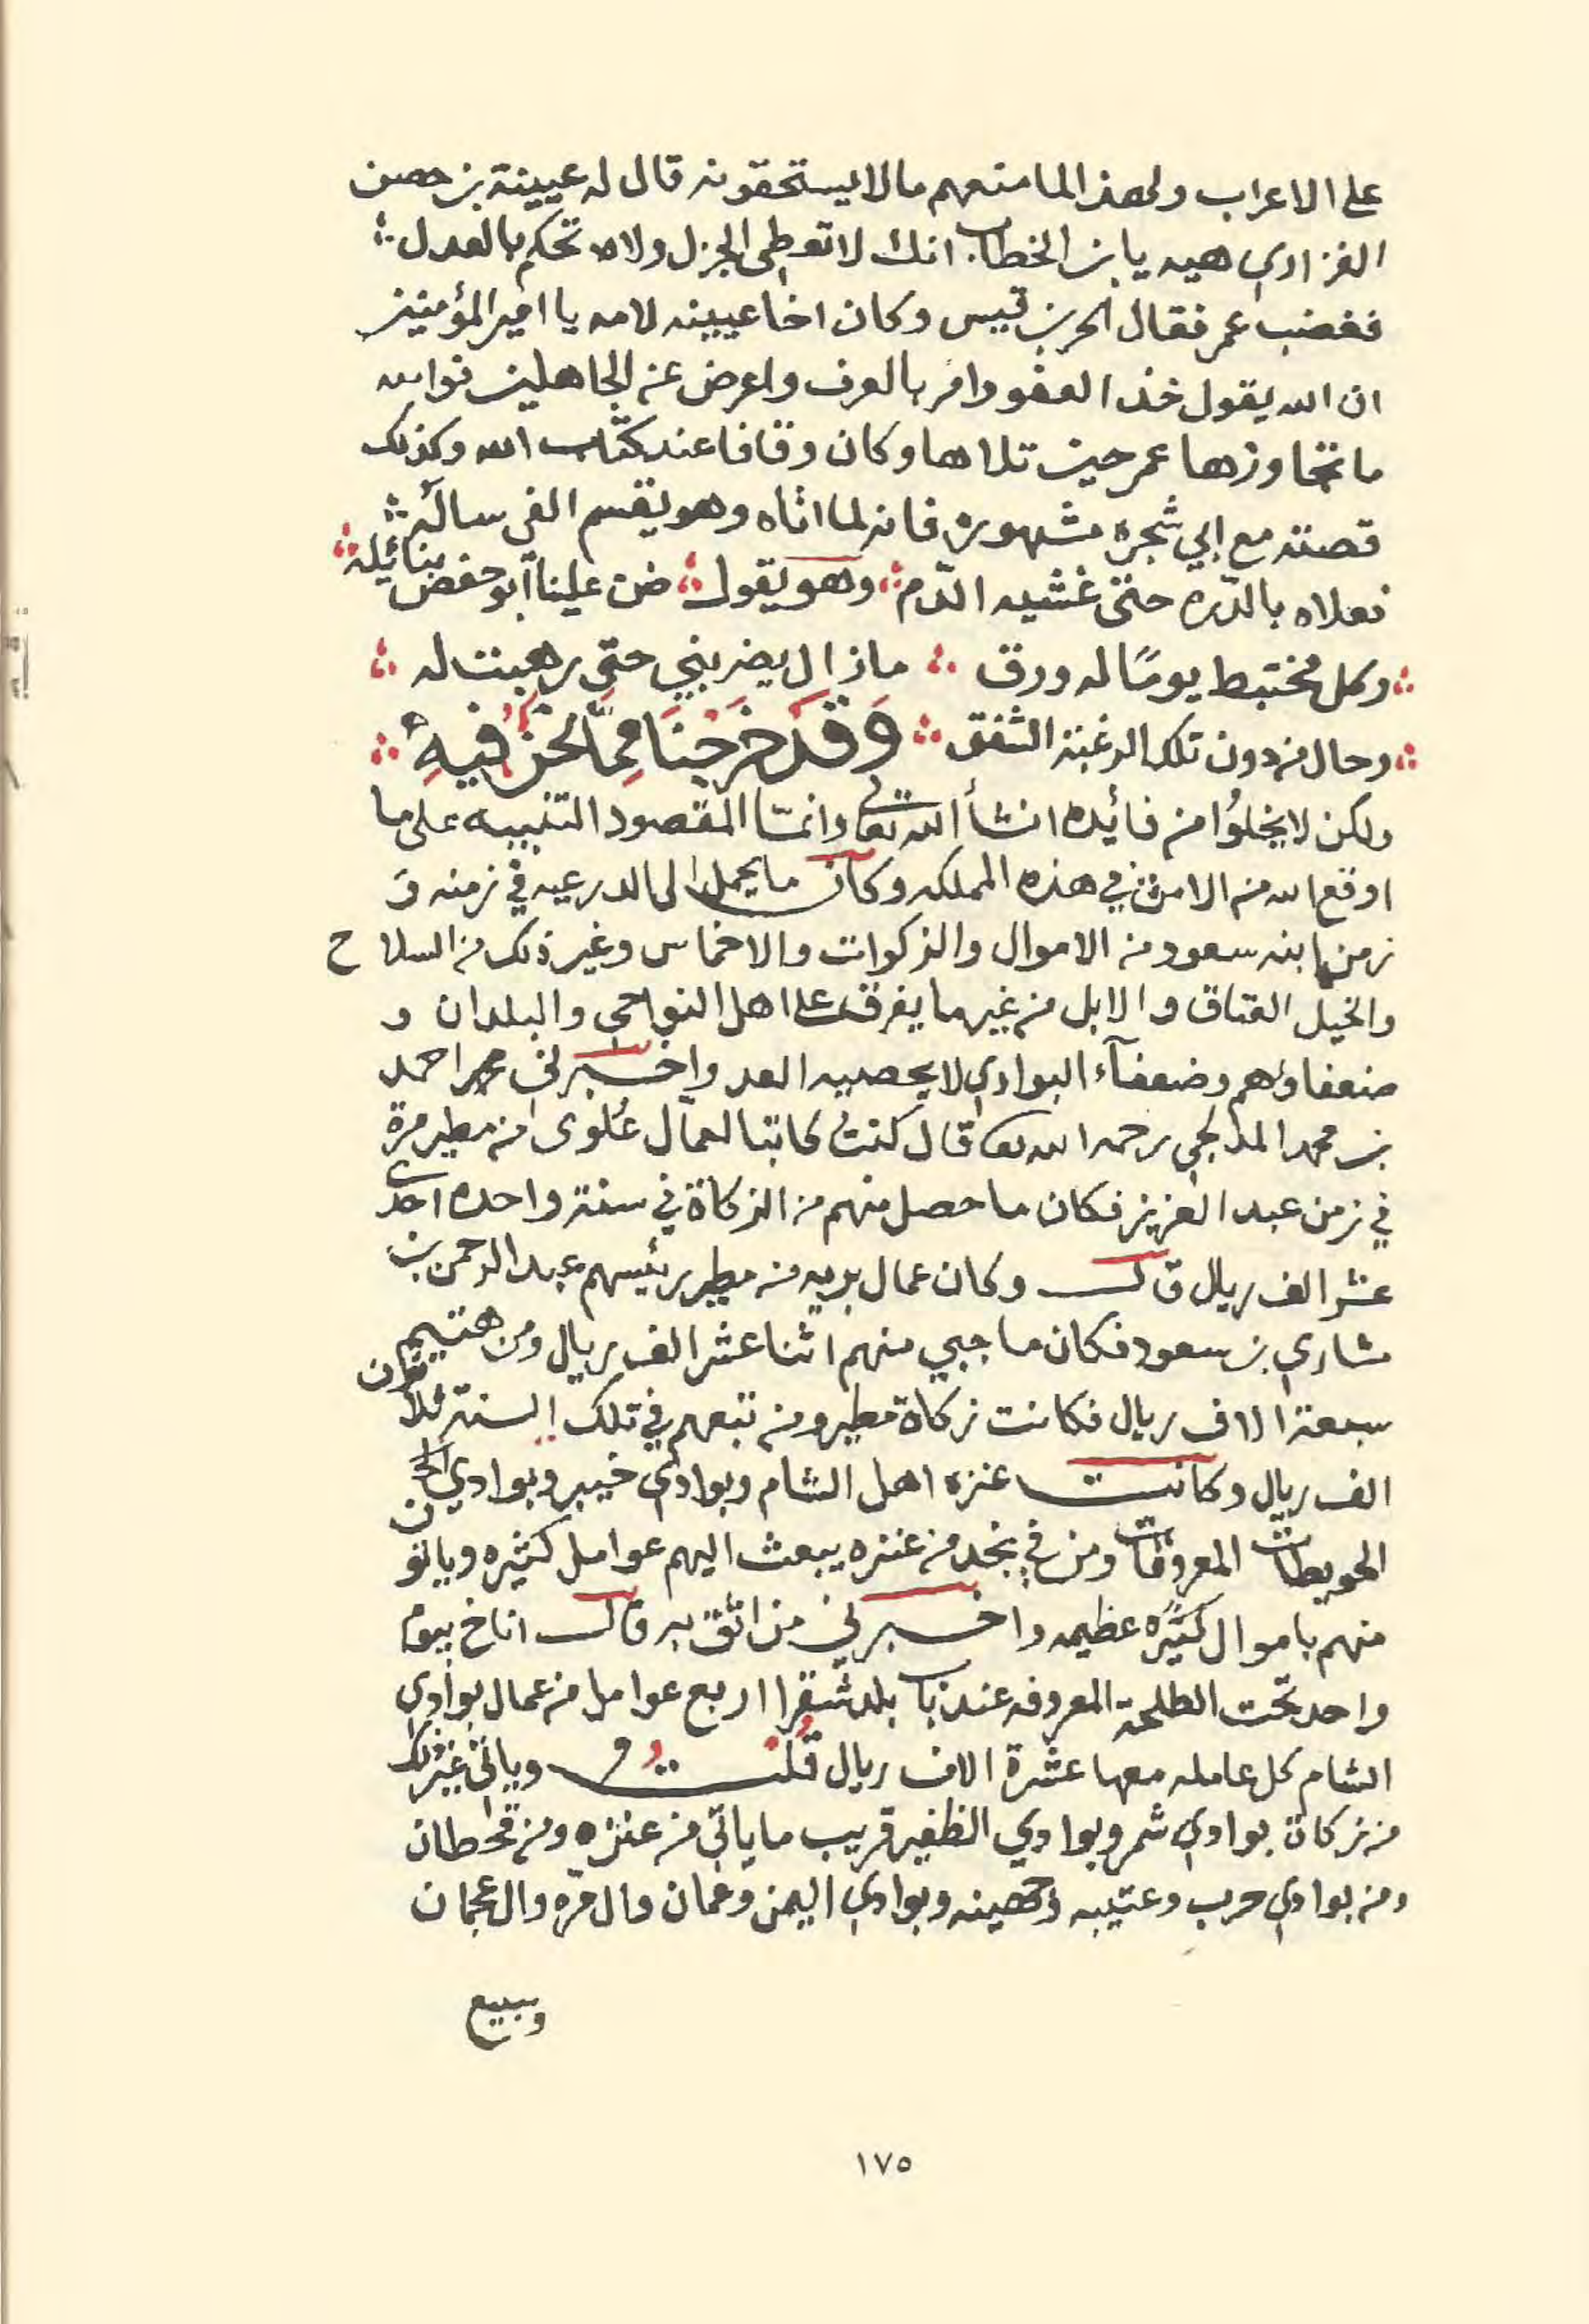 على الاعراب ولهذا لما منعهم مالا يستحقونه قال له عيينة بن حصن
الفزاري هيه يابن الخطاب انك لا تعطي الجزل ولا تحكم بالعدل
فغضب عمر فقال الحر بن قيس وكان اخا عيينه لامه يا امير المؤمنين
ان الله يقول خذ العفو وامر بالعرف واعرض عن الجاهلين فوالله
ما تجاوزها عمر حين تلاها وكان وقافا عند كتاب الله وكذلك
قصته مع ابي شجره مشهوره فانه لما اتاه وهو يقسم الفى سأله
فعلاه بالدّره حتى غشيه الدّم وهو يقول ضن علينا أبو حفص بنائله
وكل مختبط يومًا له ورق ما زال يضربني حتى رهبت له
وحال من دون تلك الرغبة الشفق وَقَدْ خَرَجْنَا مِمَّا نَحْنُ فِيهِ
ولكن لا يخلوُا من فائده انشأ الله تعالى وانمّا المقصود التنبيه على ما
اوقع الله من الامن في هذه المملكه وكان ما يحمل الى الدرعيه في زمنه و
زمن ابنه سعود من الاموال والزكوات والاخماس وغير ذلك من السلاح
والخيل العتاق والابل من غير ما يفرق على اهل النواحي والبلدان و
ضعفاؤهم وضعفآء البوادي لا يحصيه العد واخبرني محمد احمد
بن محمد المدلجي رحمه الله تعا قال كنتُ كاتبا لعمّال عُلوى من مطير مرة
في زمن عبد العزيز فكان ما حصل منهم من الزكاة في سنة واحده احدى
عشر الف ريال قال وكان عمال بريه من مطير رئيسهم عبد الرحمن بن
مشاري بن سعود فكان ما جبي منهم اثنا عشر الف ريال ومن هتيم
سبعة الاف ريال فكانت زكاة مطير ومن تبعهم في تلك السنة ثلاثون
الف ريال وكانت عنزه اهل الشام وبوادي خيبر وبوادي
الحويطات المعروفات ومن في نجد من عنزه يبعث اليهم عوامل كثيره وياتون
منهم باموال كثيره عظيمه واخبرني من اثق به قال اناخ بيوم
واحد تحت الطلحة المعروفه عند باب بلد شقرا اربع عوامل من عمال بوادي
الشام كل عامله معها عشرة الاف ريال قُلْتُ وياتي غير ذلك
من زكاة بوادي شمر وبوادي الظفير قريب ما ياتي من عنزه ومن قحطان
ومن بوادي حرب وعتيبه وجهينه وبوادي اليمن وعمان وال مره والعجمان
وسبيع
١٧٥